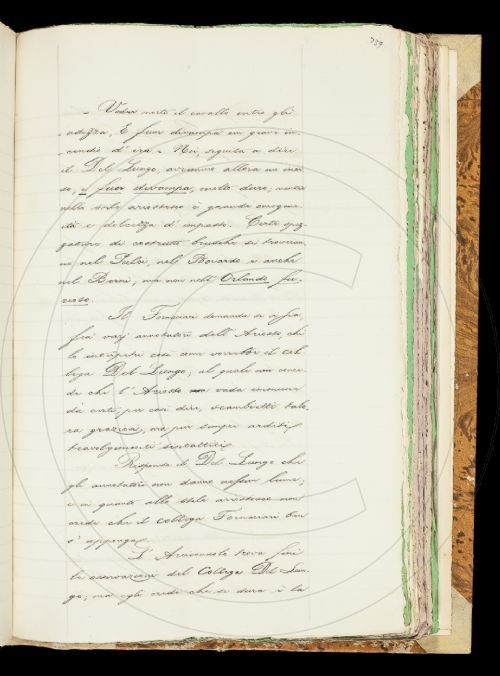 759
- Veder morto il cavallo entro gli
adizza, E fuor divampa un grave in-
cendio d'ira - Noi, seguita a dire
il Del Lungo, avremmo allora un inci-
so, e fuor divampa, molto duro, mentre
nello stile ariostesco è grande omogene-
ità e dolcezza d'impasto. Certe spez-
zature di costrutti brusche si troveran-
no, nel Pulci, nel Boiardo e anche
nel Berni, ma non nell'Orlando fu-
rioso.
Il Fornaciari domanda se vi sia,
fra i vari annotatori dell'Ariosto, chi
lo interpreti così come vorrebbe il col-
lega Del Lungo, al quale non conce-
de che l'Ariosto non vada immune
da certi, per così dire, sgambetti talo-
ra graziosi, ma pur sempre arditi, e
stravolgimenti sintattici.
Risponde il Del Lungo che
gli annotatori non danno nessun lume,
e in quanto allo stile ariostesco non
crede che il collega Fornaciari ben
s'apponga.
L'Arciconsolo trova fini
le osservazioni del Collega Del Lun-
go; ma egli crede che se dura è la